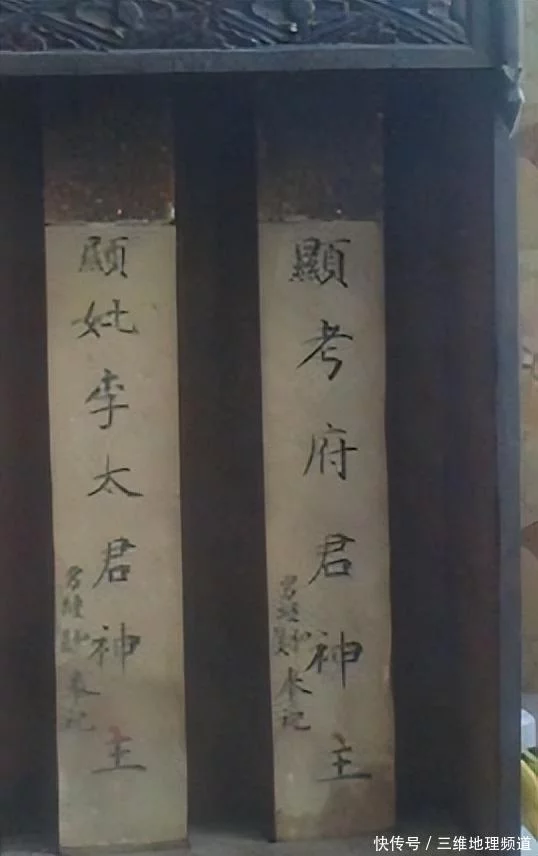 顯考府君神主
奉祀
顯妣李太君神主
奉祀
快传号/三维地理频道